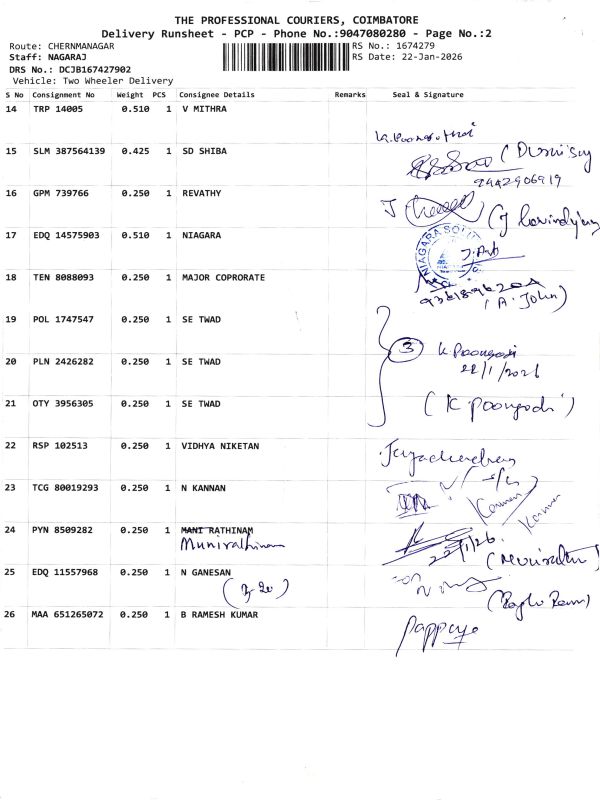 THE PROFESSIONAL COURIERS, COIMBATORE
Delivery Runsheet - PCP - Phone No.:9047080280 - Page No.:2
Route: CHERNMANAGAR RS No.: 1674279
Staff: NAGARAJ RS Date: 22-Jan-2026
DRS No.: DCJB167427902
Vehicle: Two Wheeler Delivery
S No Consignment No Weight PCS Consignee Details Remarks Seal & Signature
14 TRP 14005 0.510 1 V MITHRA
15 SLM 387564139 0.425 1 SD SHIBA
9442906919
16 GPM 739766 0.250 1 REVATHY
17 EDQ 14575903 0.510 1 NIAGARA
NIAGARA
18 TEN 8088093 0.250 1 MAJOR COPRORATE
(A. John)
19 POL 1747547 0.250 1 SE TWAD
20 PLN 2426282 0.250 1 SE TWAD
3 K. Poongodi
22/1/2026
21 OTY 3956305 0.250 1 SE TWAD
(K. poongodi)
22 RSP 102513 0.250 1 VIDHYA NIKETAN
Jeyachandran
23 TCG 80019293 0.250 1 N KANNAN
Kannan
Kannan
24 PYN 8509282 0.250 1 MANI RATHINAM
Munirathinam
22/1/26
25 EDQ 11557968 0.250 1 N GANESAN
26 MAA 651265072 0.250 1 B RAMESH KUMAR